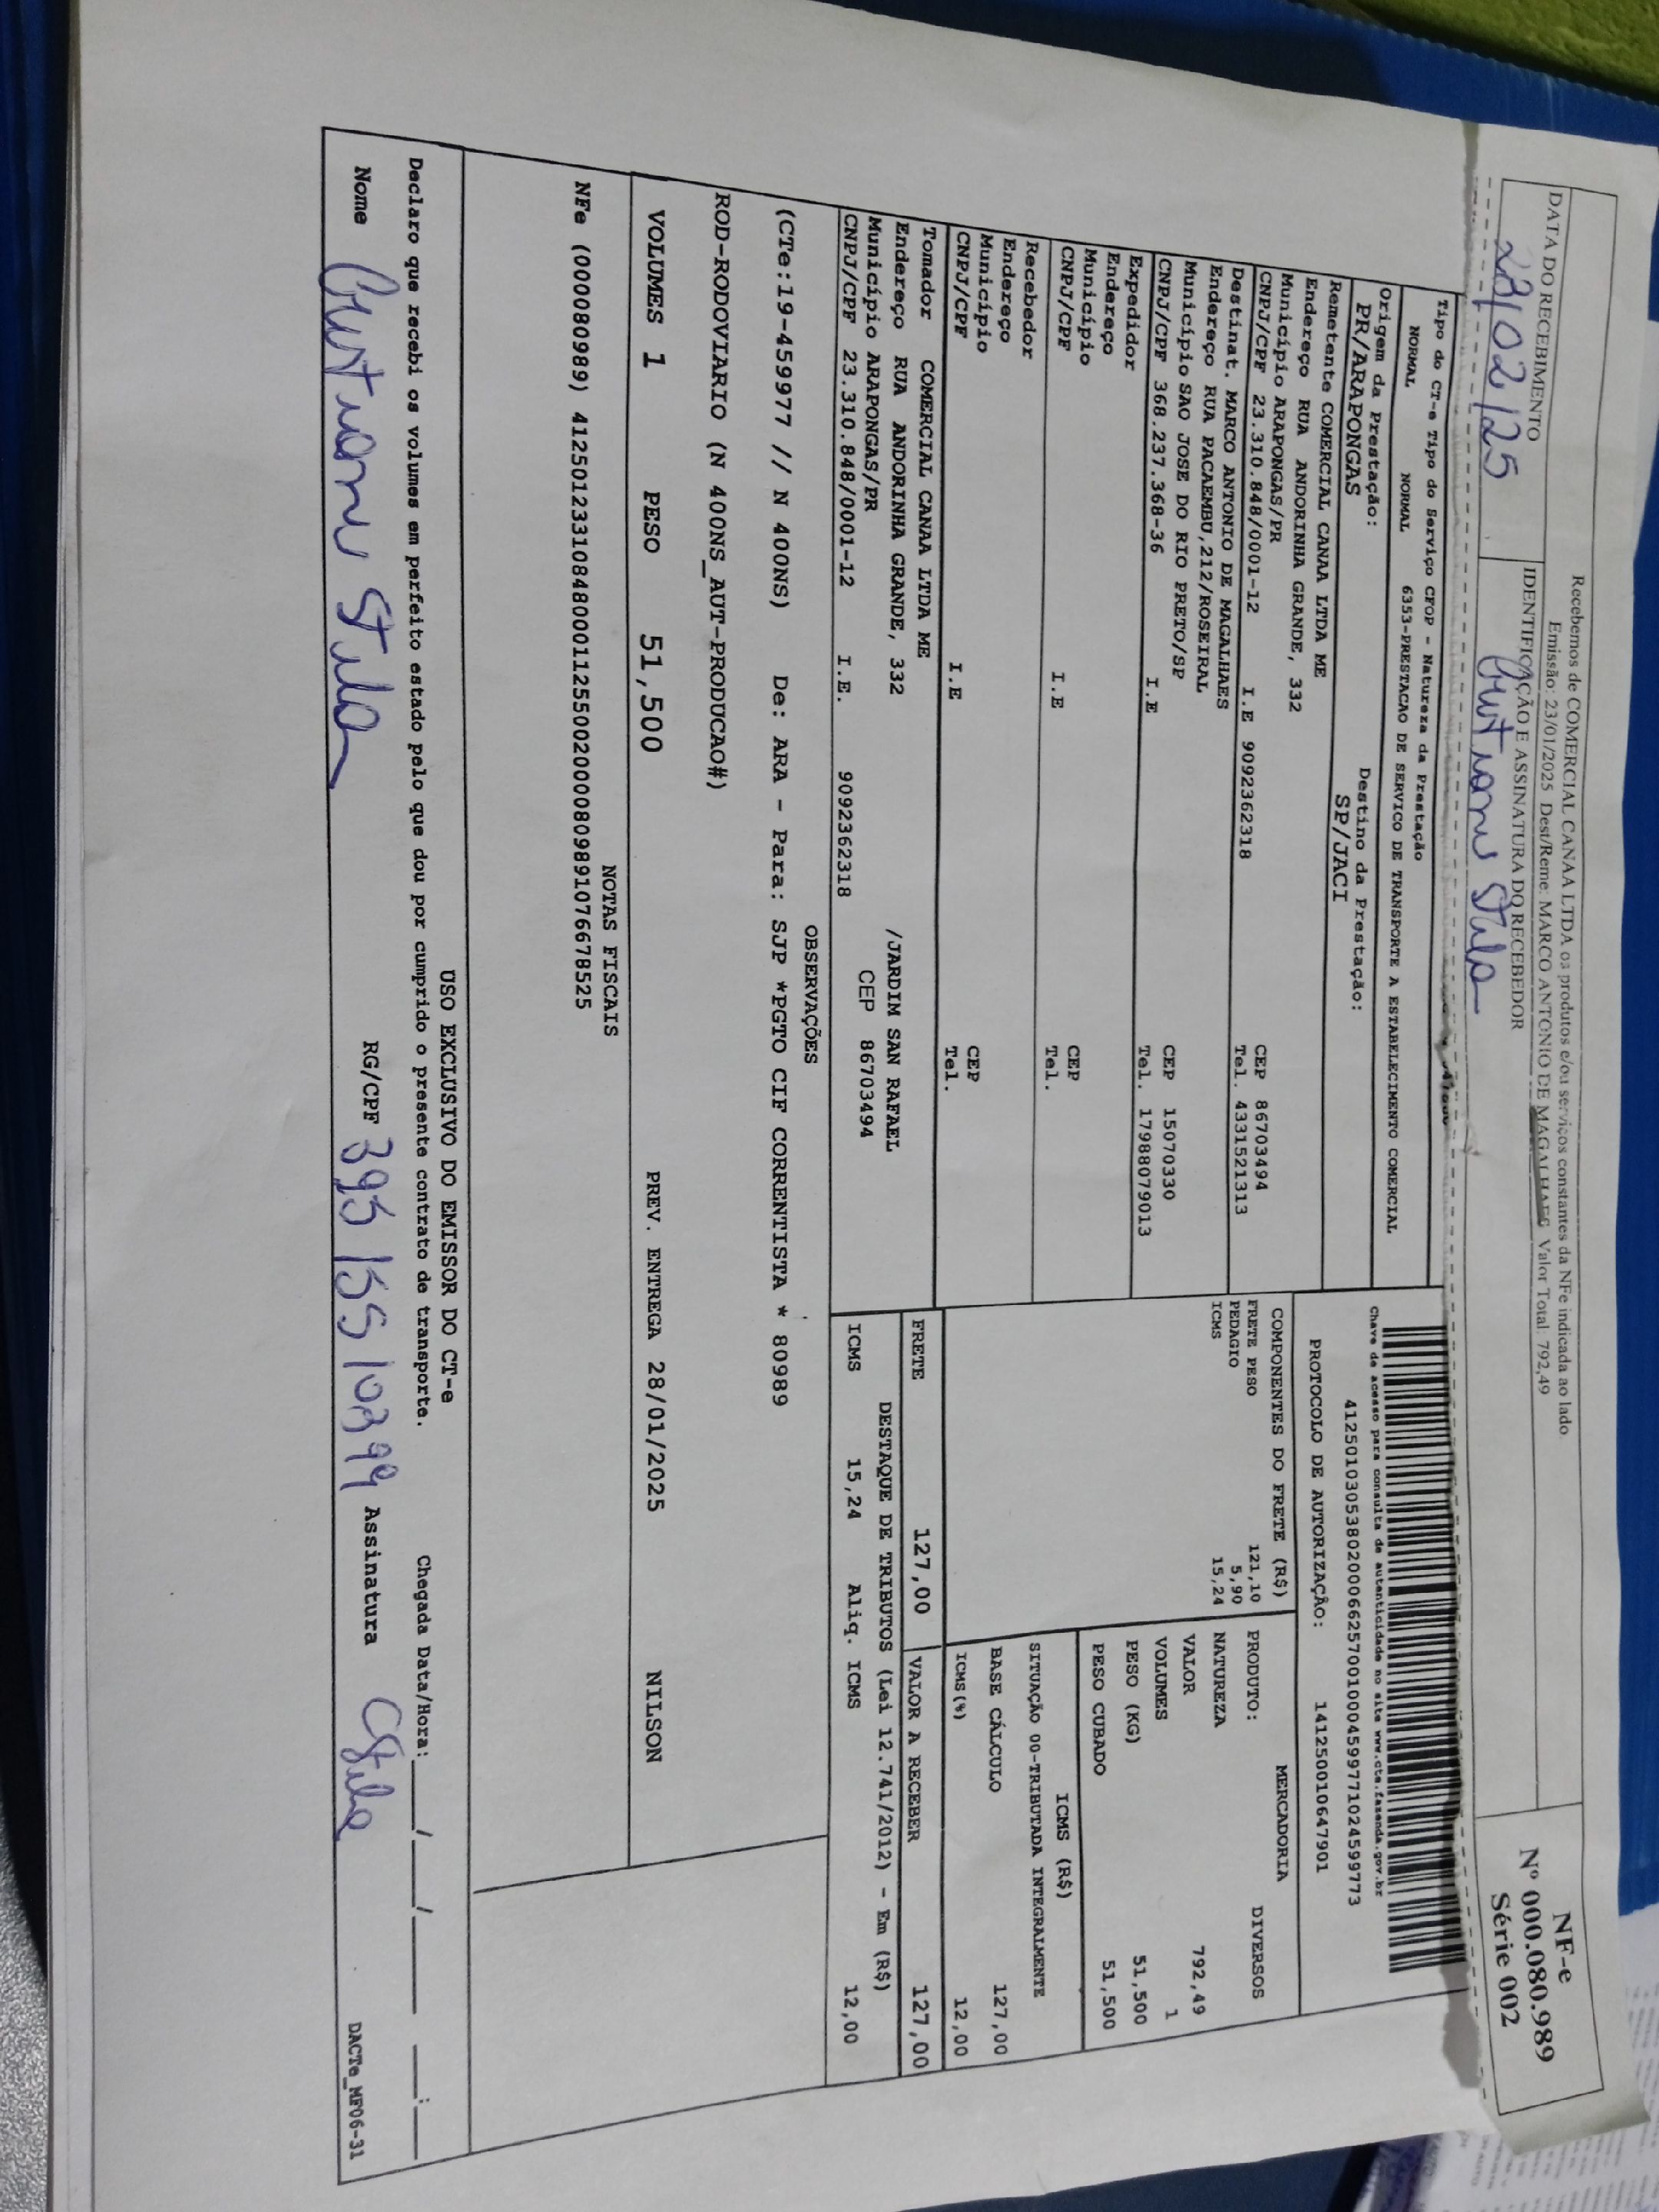 Recebemos de COMERCIAL CANAA LTDA os produtos e/ou serviços constantes da NFe indicada ao lado.
Emissão: 23/01/2025 Dest/Reme: MARCO ANTONIO DE MAGALHAES Valor Total: 792,49
DATA DO RECEBIMENTO
IDENTIFICAÇÃO E ASSINATURA DO RECEBEDOR
/02/25
NF-e
Nº 000.080.989
Série 002
Tipo do CT-e Tipo do Serviço CFOP - Natureza da Prestação
NORMAL NORMAL 6353-PRESTACAO DE SERVICO DE TRANSPORTE A ESTABELECIMENTO COMERCIAL
Origem da Prestação: Destino da Prestação:
PR/ARAPONGAS SP/JACI
Chave de acesso para consulta de autenticidade no site www.cte.fazenda.gov.br
41250103053802000066257001000459977102459 9773
PROTOCOLO DE AUTORIZAÇÃO: 141250010647901
Remetente COMERCIAL CANAA LTDA ME
Endereço RUA ANDORINHA GRANDE, 332
Município ARAPONGAS/PR CEP 86703494
CNPJ/CPF 23.310.848/0001-12 I.E 9092362318 Tel. 4331521313
Destinat. MARCO ANTONIO DE MAGALHAES
Endereço RUA PACAEMBU,212/ROSEIRAL
Município SAO JOSE DO RIO PRETO/SP CEP 15070330
CNPJ/CPF 368.237.368-36 I.E Tel. 17988079013
Expedidor
Endereço
Município CEP
CNPJ/CPF I.E Tel.
Recebedor
Endereço
Município CEP
CNPJ/CPF I.E Tel.
COMPONENTES DO FRETE (R$)
FRETE PESO 121,10
PEDAGIO 5,90
ICMS 15,24
MERCADORIA
PRODUTO: DIVERSOS
NATUREZA
VALOR 792,49
VOLUMES 1
PESO (KG) 51,500
PESO CUBADO 51,500
ICMS (R$)
SITUAÇÃO 00-TRIBUTADA INTEGRALMENTE
BASE CÁLCULO 127,00
ICMS(%) 12,00
Tomador COMERCIAL CANAA LTDA ME
Endereço RUA ANDORINHA GRANDE, 332 /JARDIM SAN RAFAEL
Município ARAPONGAS/PR CEP 86703494
CNPJ/CPF 23.310.848/0001-12 I.E. 9092362318
FRETE 127,00 VALOR A RECEBER 127,00
DESTAQUE DE TRIBUTOS (Lei 12.741/2012) - Em (R$)
ICMS 15,24 Aliq. ICMS 12,00
OBSERVAÇÕES
(CTe:19-459977 // N 400NS) De: ARA - Para: SJP *PGTO CIF CORRENTISTA * 80989
ROD-RODOVIARIO (N 400NS_AUT-PRODUCAO#)
VOLUMES 1 PESO 51,500 PREV. ENTREGA 28/01/2025 NILSON
NOTAS FISCAIS
NFe (000080989) 41250123310848000112550020000809891076678525
USO EXCLUSIVO DO EMISSOR DO CT-e
Declaro que recebi os volumes em perfeito estado pelo que dou por cumprido o presente contrato de transporte. Chegada Data/Hora:____/____/____ ____:____
Nome RG/CPF Assinatura
DACTe_MF06-31